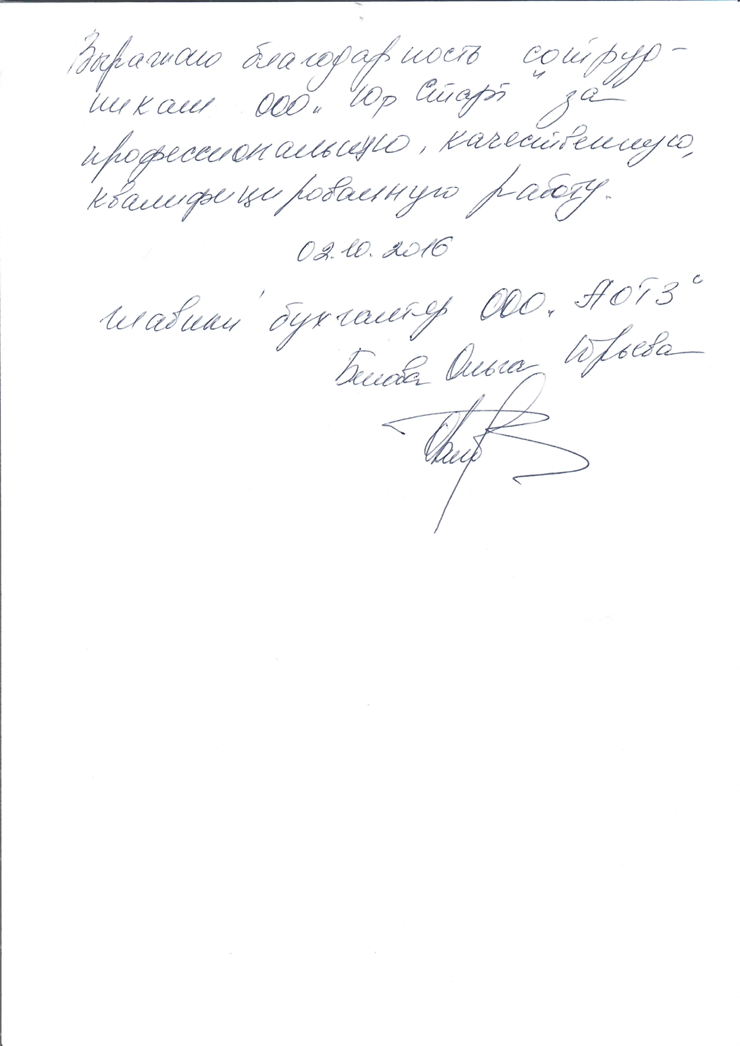 Выражаю благодарность сотруд-
никам ООО „Юр Старт" за
профессиональную, качественную,
квалифицированную работу.
02.10.2016
главный бухгалтер ООО „АОТЗ"
Ольга Юрьевна